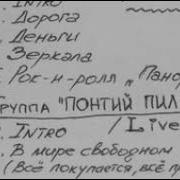 . INTRO
. Дорога
. Деньги
. Зеркала
. Рок-н-ролл „Пано
группа "ПОНТИЙ ПИЛ
. INTRO / Live
. В мире свободном
(Всё покупается, всё пр